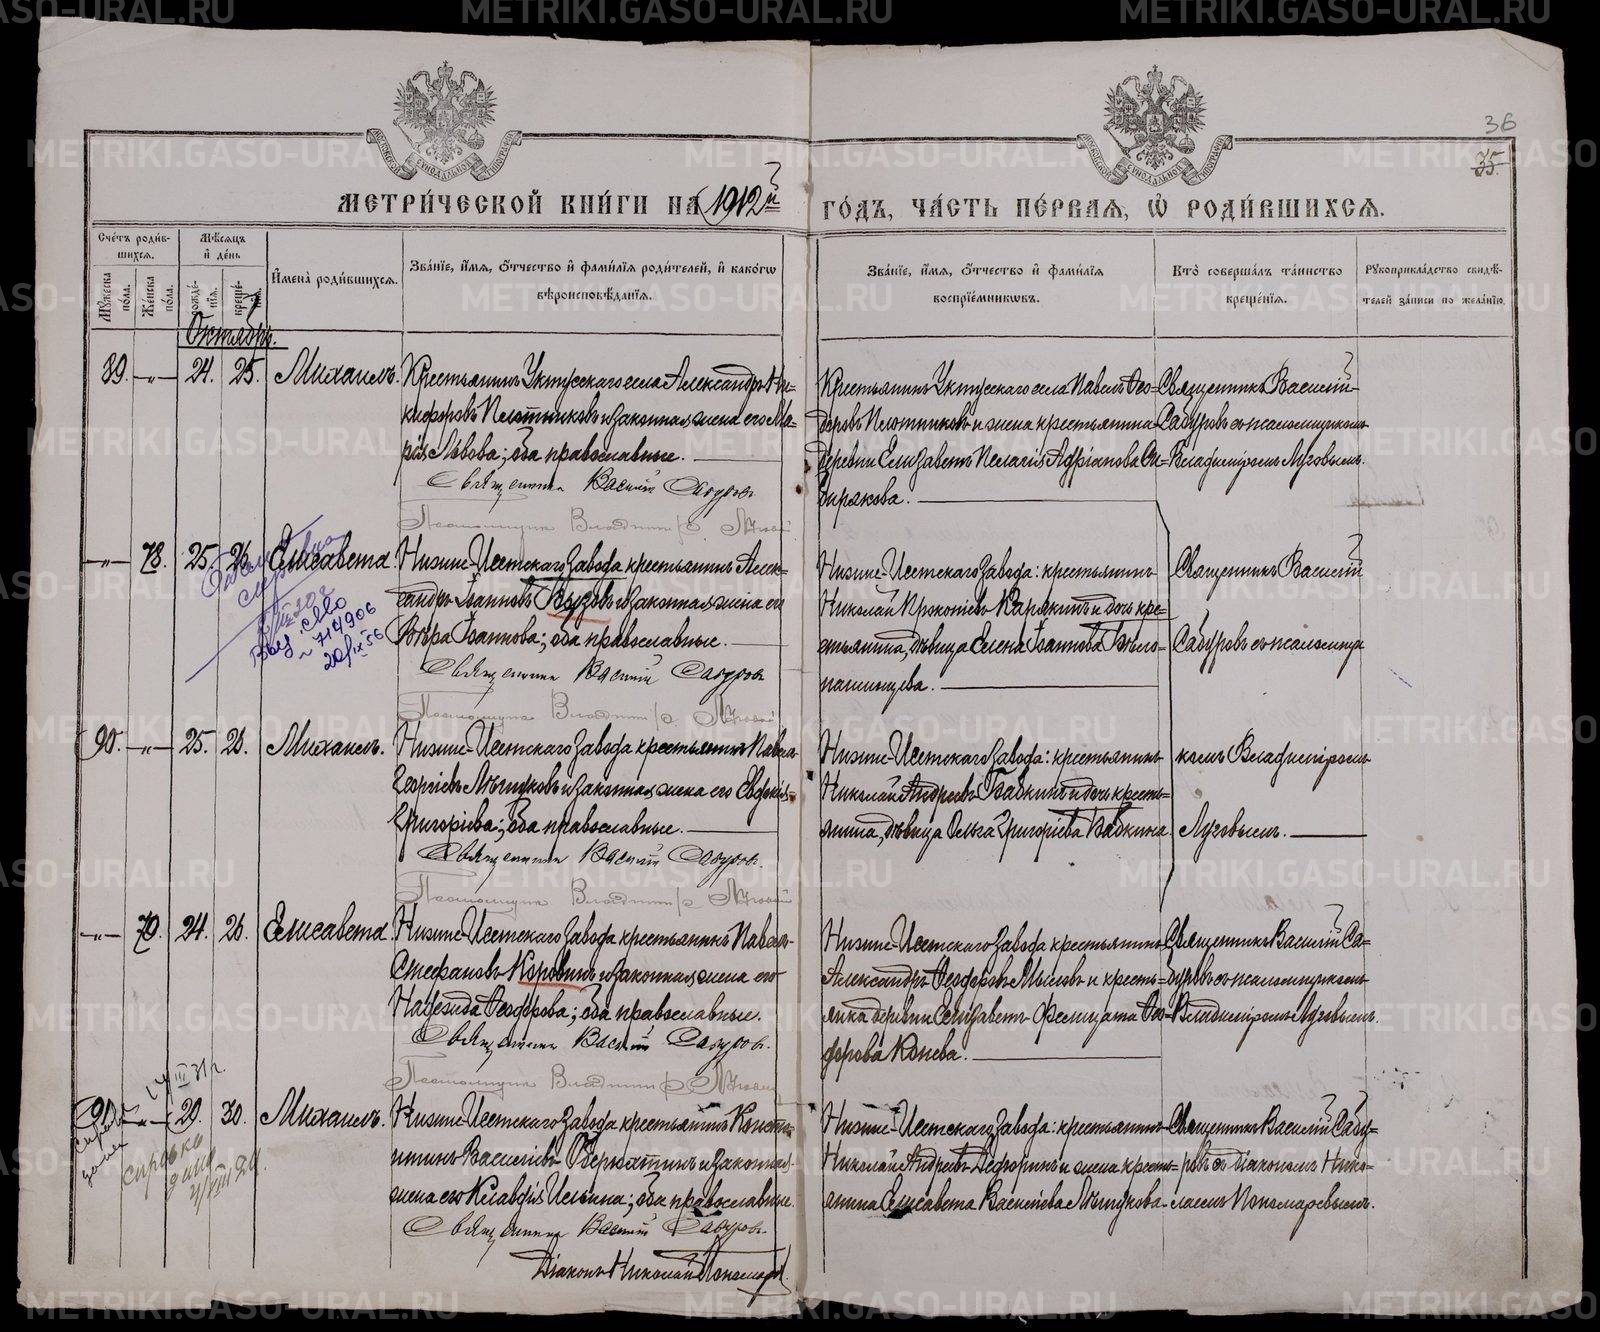 36
35.
МЕТРИ́ЧЕСКОЙ КНИ́ГИ НА 1912й ГО́ДЪ, ЧА́СТЬ ПЕ́РВАЯ, Ѽ РОДИ́ВШИХСЯ.
Сче́тъ роди́вшихся.
Мѣ́сяцъ и де́нь
Му́жеска по́ла.
Же́нска по́ла.
рожде́нїя.
креще́нїя.
И҆мена̀ роди́вшихся.
Зва́нїе, и҆́мя, ѻ҆́тчество и҆ фами́лїя роди́телей, и҆ како́гѡ
вѣроисповѣ́данїя.
Зва́нїе, и҆́мя, ѻ҆́тчество и҆ фами́лїя
воспрїе́мниковъ.
Кто̀ соверша́лъ та́инство
креще́нїя.
Рукоприкла́дство свидѣ́телей за́писи по жела́нїю.
Октябрь.
89. -"- 24. 25. Михаилъ.
Крестьянинъ Уктусскаго села Александръ Ни-
кифоровъ Плотниковъ и законная жена его Ма-
рія Львова; оба православные.
Священник Василій Сабуров
Псаломщик Владимір Луговой
Крестьянинъ Уктусскаго села Павелъ Ѳео-
доровъ Плотниковъ и жена крестьянина
деревни Елизаветъ Пелагія Адріанова Си-
бирякова.
Священникъ Василій
Сабуровъ съ псаломщикомъ
Владиміромъ Луговымъ.
-"- 78. 25. 26. Елисавета.
Нижне-Исетскаго завода крестьянинъ Алек-
сандръ Іоанновъ Вызовъ и законная жена его
Вѣра Іоаннова; оба православные.
Священник Василій Сабуров
Псаломщик Владимір Луговой
Нижне-Исетскаго завода: крестьянинъ
Николай Прокопіевъ Карякинъ и дочь кре-
стьянина, дѣвица Елена Іоаннова Бѣло-
пашинцева.
Священникъ Василій
Сабуровъ съ псаломщи
Выд. св-во
714906
20/IX 56
90. -"- 25. 26. Михаилъ.
Нижне-Исетскаго завода крестьянинъ Павелъ
Георгіевъ Лѣщуковъ и законная жена его Евдокія
Григоріева; оба православные.
Священник Василій Сабуров.
Псаломщик Владимір Луговой
Нижне-Исетскаго завода: крестьянинъ
Николай Андреевъ Бабкинъ и дочь кресть-
янина, дѣвица Ольга Григоріева Бабкина.
комъ Владиміромъ
Луговымъ.
-"- 79. 24. 26. Елисавета.
Нижне-Исетскаго завода крестьянинъ Павелъ
Стефановъ Коровинъ и законная жена его
Надежда Ѳеодорова; оба православные.
Священник Василій Сабуров.
Псаломщик Владимір Луговой
Нижне-Исетскаго завода крестьянинъ
Александръ Ѳеодоровъ Мысовъ и кресть-
янка деревни Елизаветъ Фелицата Ѳео-
дорова Конева.
Священникъ Василій Са-
буровъ съ псаломщикомъ
Владиміромъ Луговымъ.
91. -"- 29. 30. Михаилъ.
Нижне-Исетскаго завода крестьянинъ Конста-
нтинъ Василіевъ Обернятинъ и законная
жена его Клавдія Ильина; оба православные.
Священник Василій Сабуров.
Діаконъ Николай Пономарев.
Нижне-Исетскаго завода: крестьянинъ
Николай Андреевъ Дефоринъ и жена кресть-
янина Елисавета Василіева Лѣщукова.
Священникъ Василій Сабу-
ровъ съ діакономъ Нико-
лаемъ Пономаревымъ.
METRIKI.GASO-URAL.RU